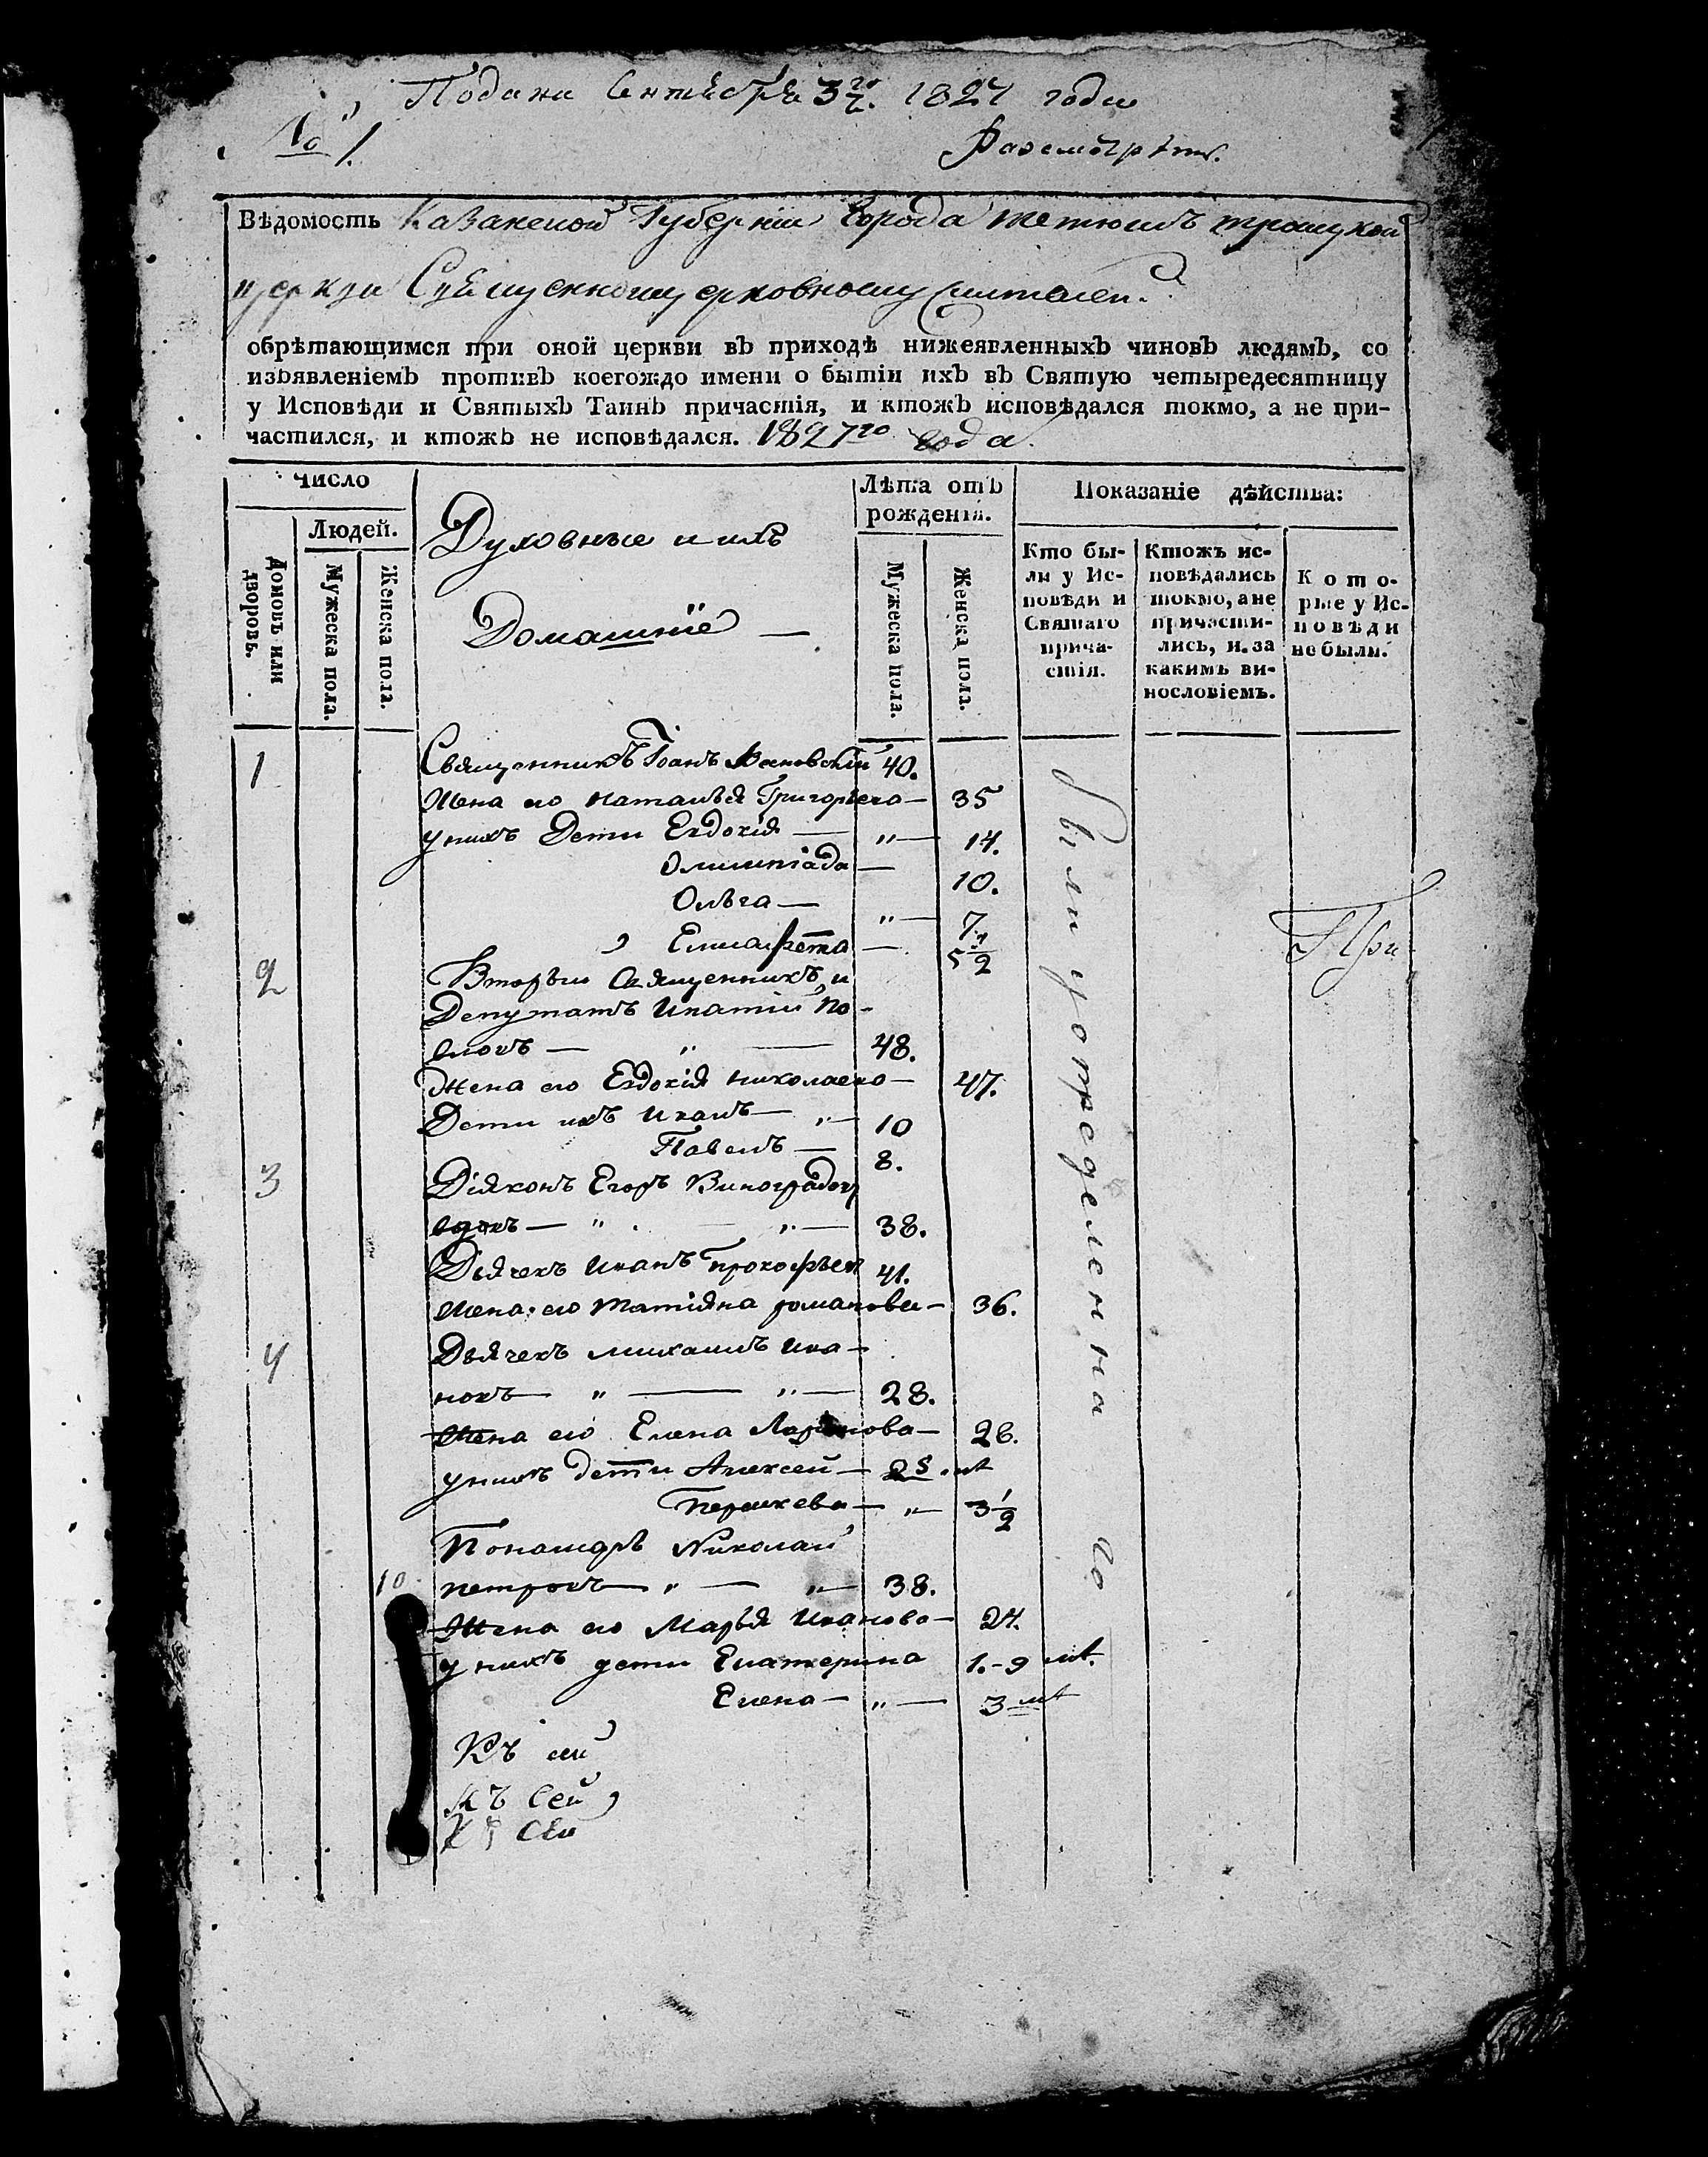 Подана Сентября 3го. 1827 года
№ 1.
Разсмотрѣть.
Вѣдомость Казанской Губерніи Города тетюшъ троицкой
церкви Священноцерковнослужителей.
обрѣтающимся при оной церкви въ приходѣ нижеявленныхъ чиновъ людямъ, со
изъявленіемъ противъ коегождо имени о бытіи ихъ въ Святую четыредесятницу
у Исповѣди и Святыхъ Таинъ причастія, и ктожъ исповѣдался токмо, а не при-
частился, и ктожъ не исповѣдался. 1827го года.
число
Людей.
Домовъ или дворовъ.
Мужеска пола.
Женска пола.
Духовные и ихъ
Домашніе —
Лѣта отъ
рожденія.
Мужеска пола.
Женска пола.
Показаніе дѣйства:
Кто бы-
ли у Ис-
повѣди и
Святаго
прича-
стія.
Ктожъ ис-
повѣдались
токмо, а не
причасти-
лись, и за
какимъ ви-
нословіемъ.
Кото-
рые у Ис-
повѣди
не были.
1 Священникъ Іоанъ 40.
Жена его наталья Григорьева — 35
у нихъ Дети Евдокія — „ — 14.
Олимпіада — 10.
Ольга — „ — 7.
Елисафета — 5 1/2
2 Вторыи Священникъ, и
Депутатъ Ипатіи По-
повъ — „ — 48.
Жена его Евдокія николаева — 47.
Дети ихъ Иванъ — „ — 10
Павелъ — 8.
3 Діяконъ Егоръ Виноградовъ
вдовъ — „ — „ — 38.
Дьячекъ Иванъ прокофьевъ 41.
Жена его татіяна романова — 36.
4 Дьячекъ михаилъ Ива-
новъ — „ — „ — 28.
Жена его Елена — 26.
у нихъ дети Алексей —
Парасκева — „ — 3 1/2
Пономарь Николай
10 петровъ — „ — „ — 38.
Жена его Марья Иванова — 24.
у нихъ дети Екатерина 1.-9 мѣ.
Елена — „ — 3 мѣ
Къ сей
къ Сей
К Сей
Были у
При